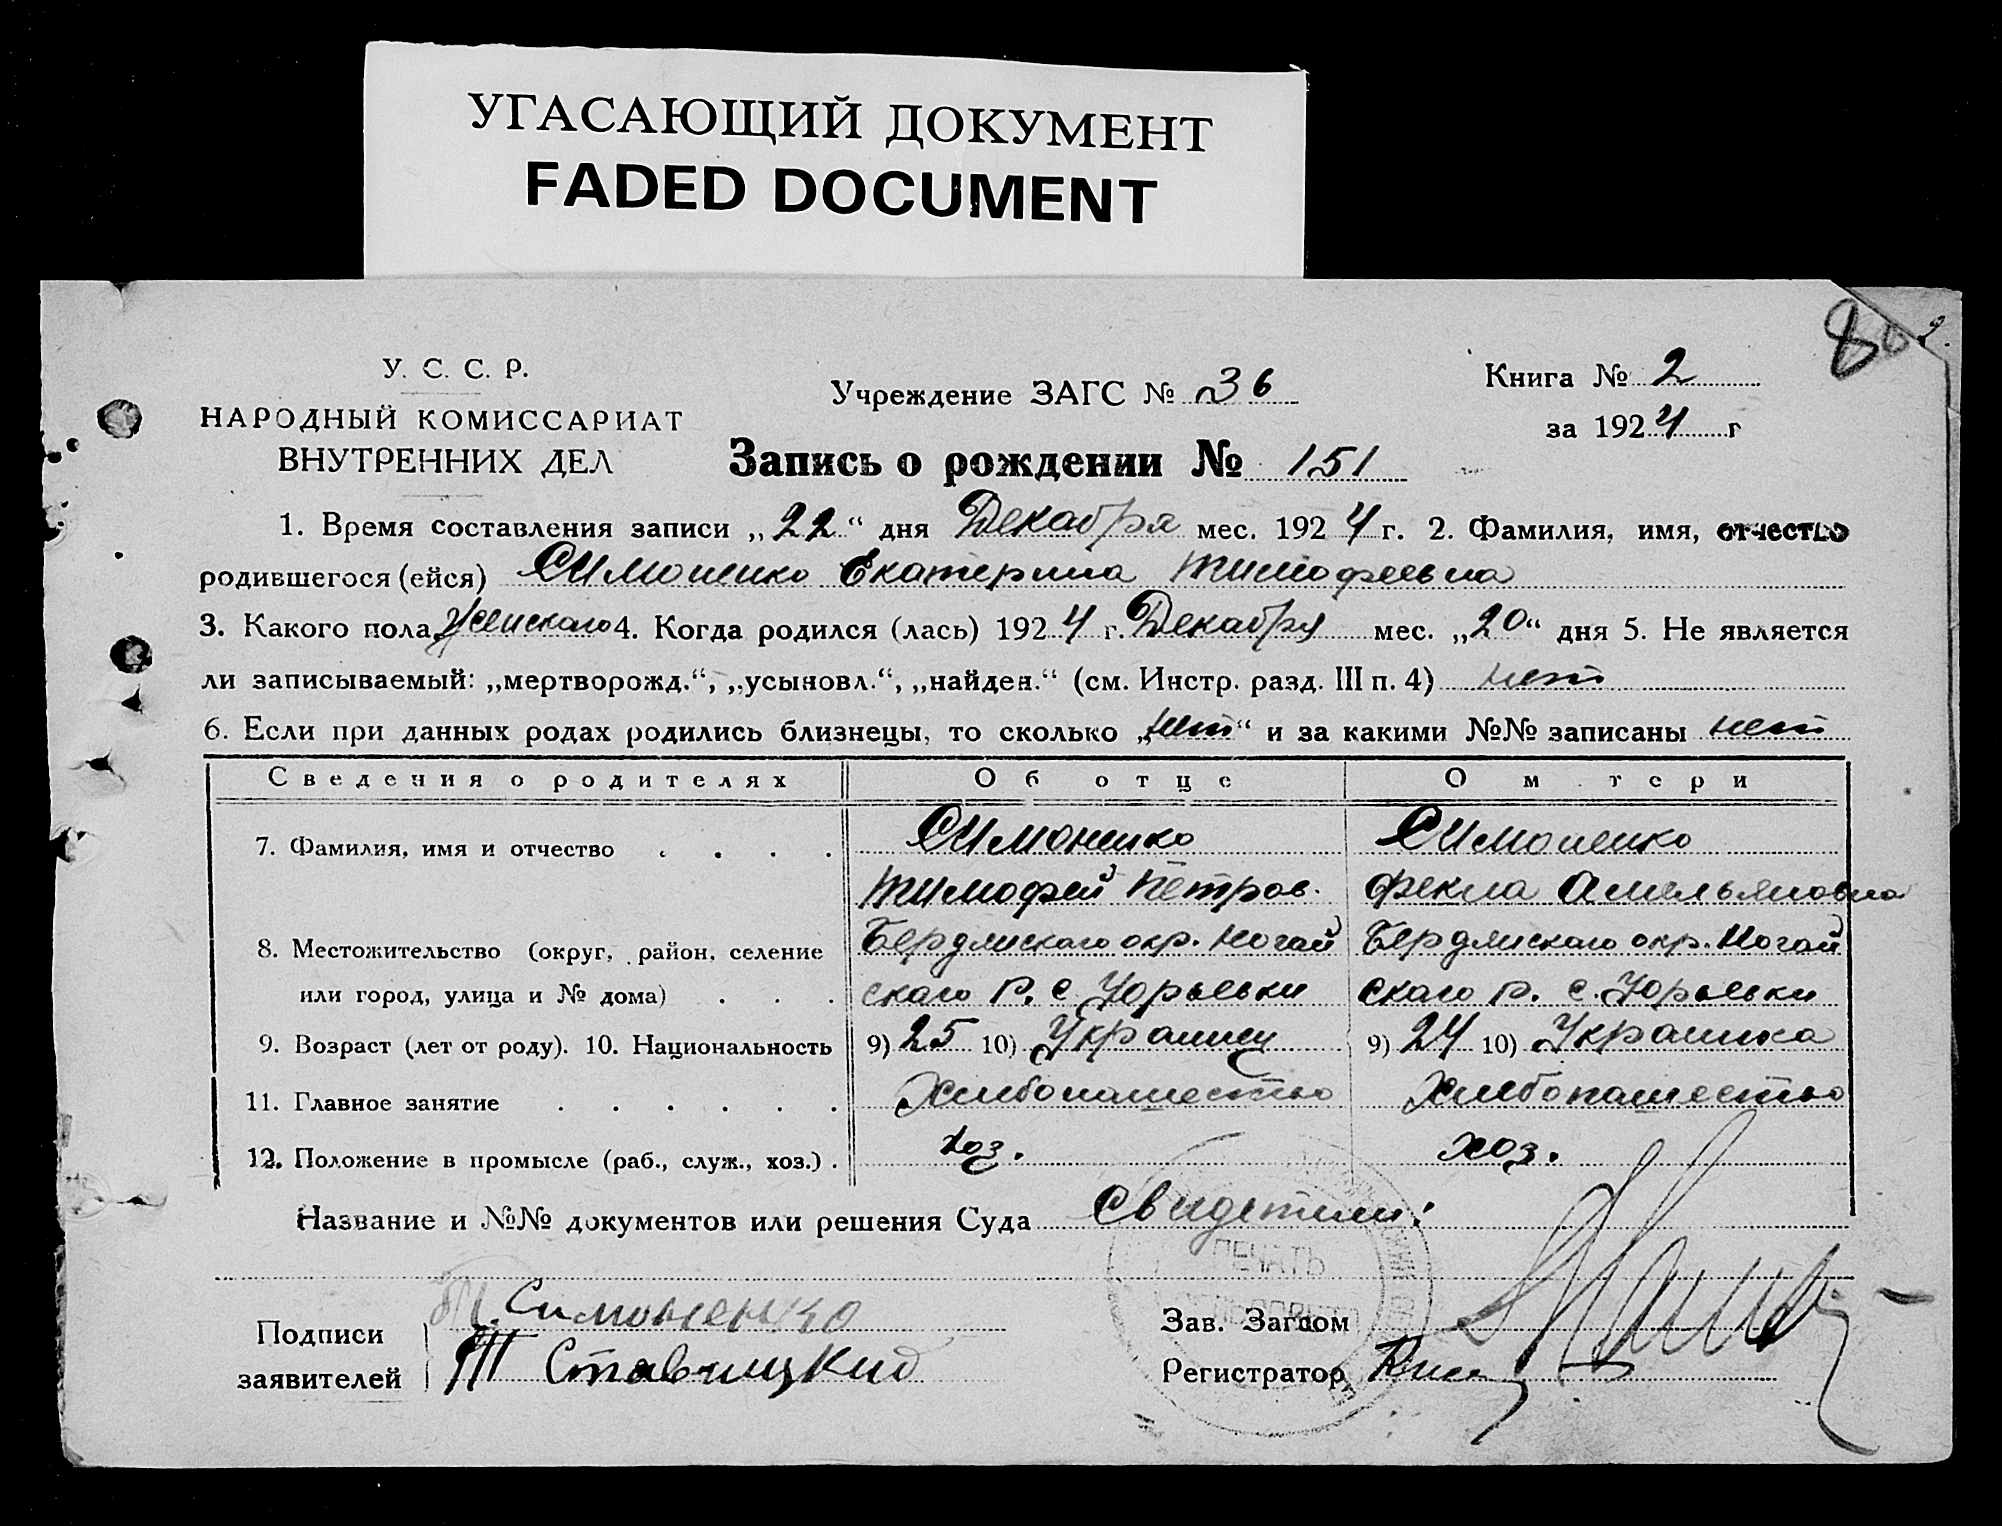 УГАСАЮЩИЙ ДОКУМЕНТ
FADED DOCUMENT
У. С. С. Р.
НАРОДНЫЙ КОМИССАРИАТ
ВНУТРЕННИХ ДЕЛ
Учреждение ЗАГС № 36
Книга № 2
за 1924 г
Запись о рождении № 151
1. Время составления записи „22“ дня Декабря мес. 1924 г. 2. Фамилия, имя, отчество
родившегося (ейся) Симоненко Екатерина Тимофеевна
3. Какого пола Женскаго 4. Когда родился (лась) 1924 г. Декабря мес. „20“ дня 5. Не является
ли записываемый: „мертворожд.“, „усыновл.“, „найден.“ (см. Инстр. разд. III п. 4) нет
6. Если при данных родах родились близнецы, то сколько „нет“ и за какими №№ записаны нет
Сведения о родителях Об отце О м тери
7. Фамилия, имя и отчество Симоненко Симоненко
Тимофей Петров. Фекла Амельяновна
8. Местожительство (округ, район, селение Бердянскаго окр. Ногай Бердянскаго окр. Ногай
или город, улица и № дома) скаго р. с Юрьевки скаго р. с. Юрьевки
9. Возраст (лет от роду). 10. Национальность 9) 25 10) Украинец 9) 24 10) Украинка
11. Главное занятие Хлебопашество Хлебопашество
12. Положение в промысле (раб., служ., хоз.) хоз. хоз.
Название и №№ документов или решения Суда Свидетели:
ПЕЧАТЬ
Подписи
заявителей
Т. Симоненко
Т Ставицкий
Зав. Загсом
Регистратор